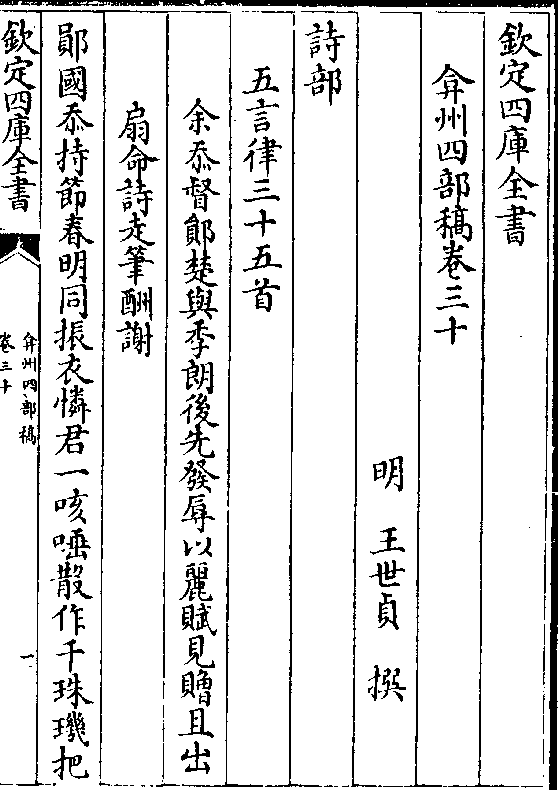 欽定四庫全書
弇州四部稿卷三十
明 王世貞 撰
詩部
五言律三十五首
余忝督鄖楚與季朗後先發辱以麗賦見贈且出
扇命詩走筆酬謝
鄖國忝持節春明同振衣憐君一咳唾散作千珠璣把
欽定四庫全書
弇州四部稿
卷三十
一